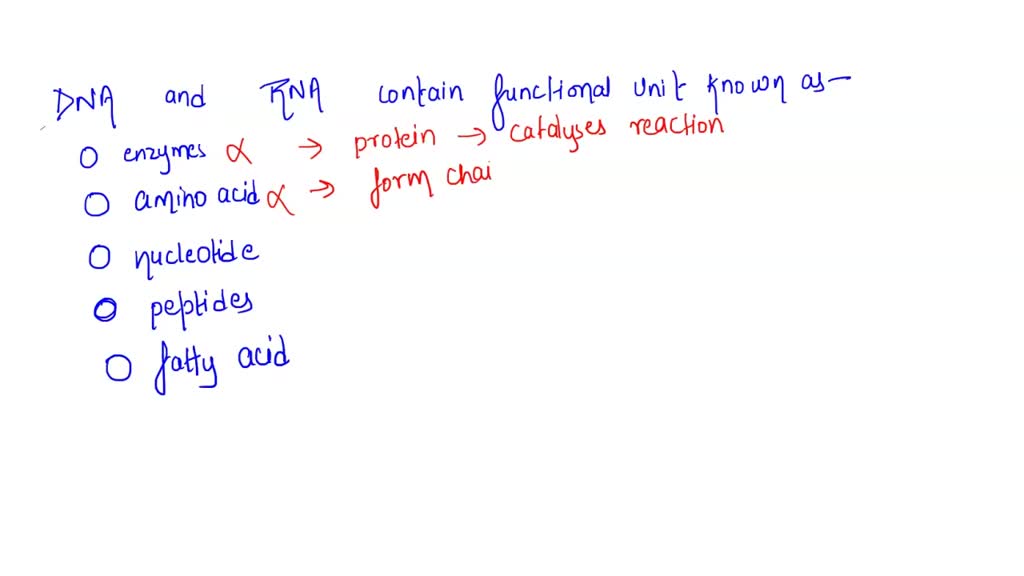 DNA and RNA contain functional unit known as—
enzymes α → protein → catalyses reaction
amino acid α → form chai
nucleotide
peptides
fatty acid